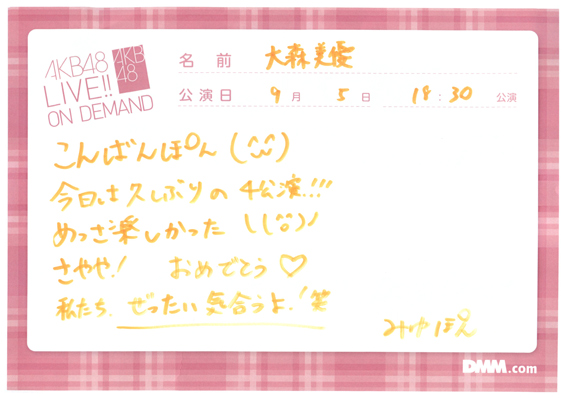 AKB48
LIVE!!
ON DEMAND
AKB
48
名前 大森美優
公演日 9月 5日 18:30 公演
こんばんぽん (^ω^)
今日は久しぶりの 4公演!!!
めっさ楽しかった \(^o^)/
さやや! おめでとう♡
私たち、ぜったい気合うよ!笑
みゆぽん
DMM.com